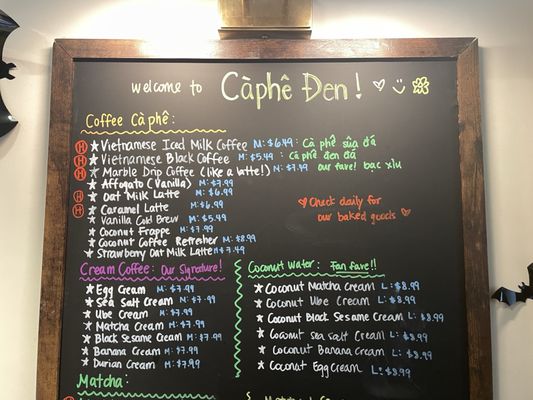 welcome to Càphê Đen!
Coffee Cà phê:
H Vietnamese Iced Milk Coffee M: $6.49: Cà phê sữa đá
H Vietnamese Black Coffee M: $5.49 : Cà phê đen đá
H Marble Drip Coffee (like a latte!) M: $7.49 our fave! bạc xỉu
Affogato (Vanilla) M: $7.99
H Oat Milk Latte M: $6.99
H Caramel Latte M: $6.99
Vanilla Cold Brew M: $5.49
Coconut Frappe M: $7.99
Coconut Coffee Refresher M: $8.99
Strawberry Oat Milk Latte M: $7.49
Check daily for
our baked goods
Cream Coffee: Our Signature!
Egg Cream M: $7.99
Sea Salt Cream M: $7.99
Ube Cream M: $7.99
Matcha Cream M: $7.99
Black Sesame Cream M: $7.99
Banana Cream M: $7.99
Durian Cream M: $7.99
Matcha:
Coconut Water: Fan fave!!
Coconut Matcha Cream L: $8.99
Coconut Ube Cream L: $8.99
Coconut Black Sesame Cream L: $8.99
Coconut Sea Salt Cream L: $8.99
Coconut Banana Cream L: $8.99
Coconut Egg Cream L: $8.99